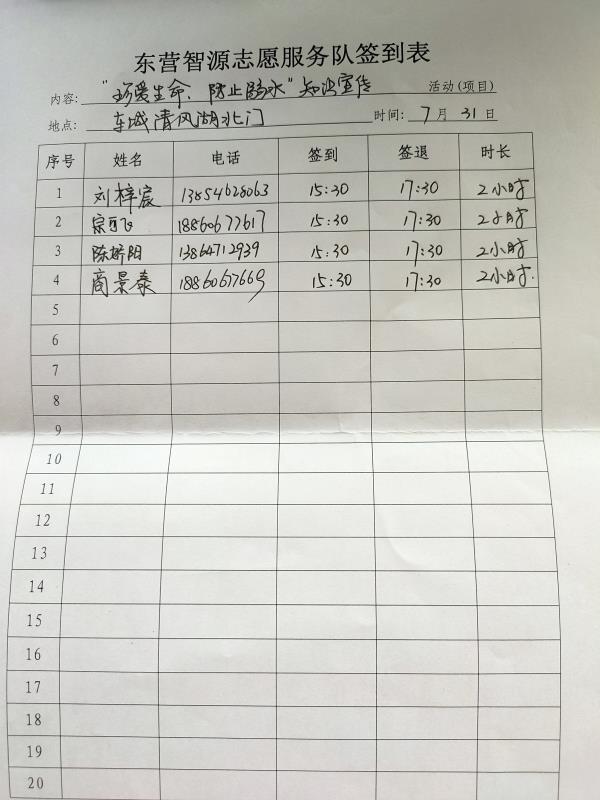 东营智源志愿服务队签到表
内容: "珍爱生命、防止溺水"知识宣传 活动(项目)
地点: 东城清风湖北门 时间: 7 月 31 日
序号 姓名 电话 签到 签退 时长
1 刘梓宸 13854628063 15:30 17:30 2小时
2 宗 飞 18860677617 15:30 17:30 2小时
3 陈娇阳 13864712939 15:30 17:30 2小时
4 商景泰 18860677669 15:30 17:30 2小时.
5
6
7
8
9
10
11
12
13
14
15
16
17
18
19
20